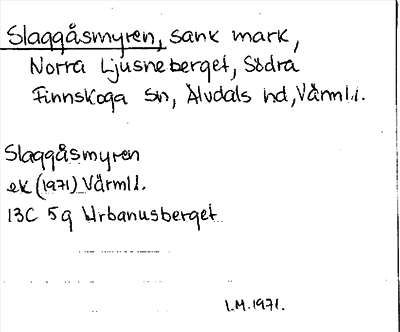 Slaggåsmyren, sank mark,
Norra Ljusneberget, Södra
Finnskoga sn, Älvdals hd, Värml.l.
Slaggåsmyren
ek (1971) Värml l.
13C 5g Urbanusberget
I.M. 1971.